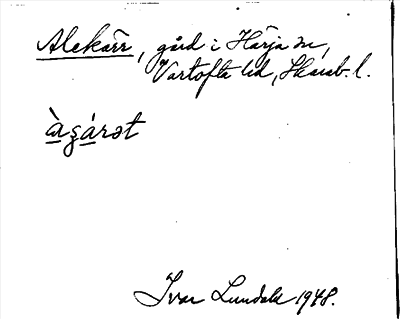 Alekärr, gård i Härja sn,
Vartofta hd, Skarab. l.
àgárət
Ivar Lundahl 1948.